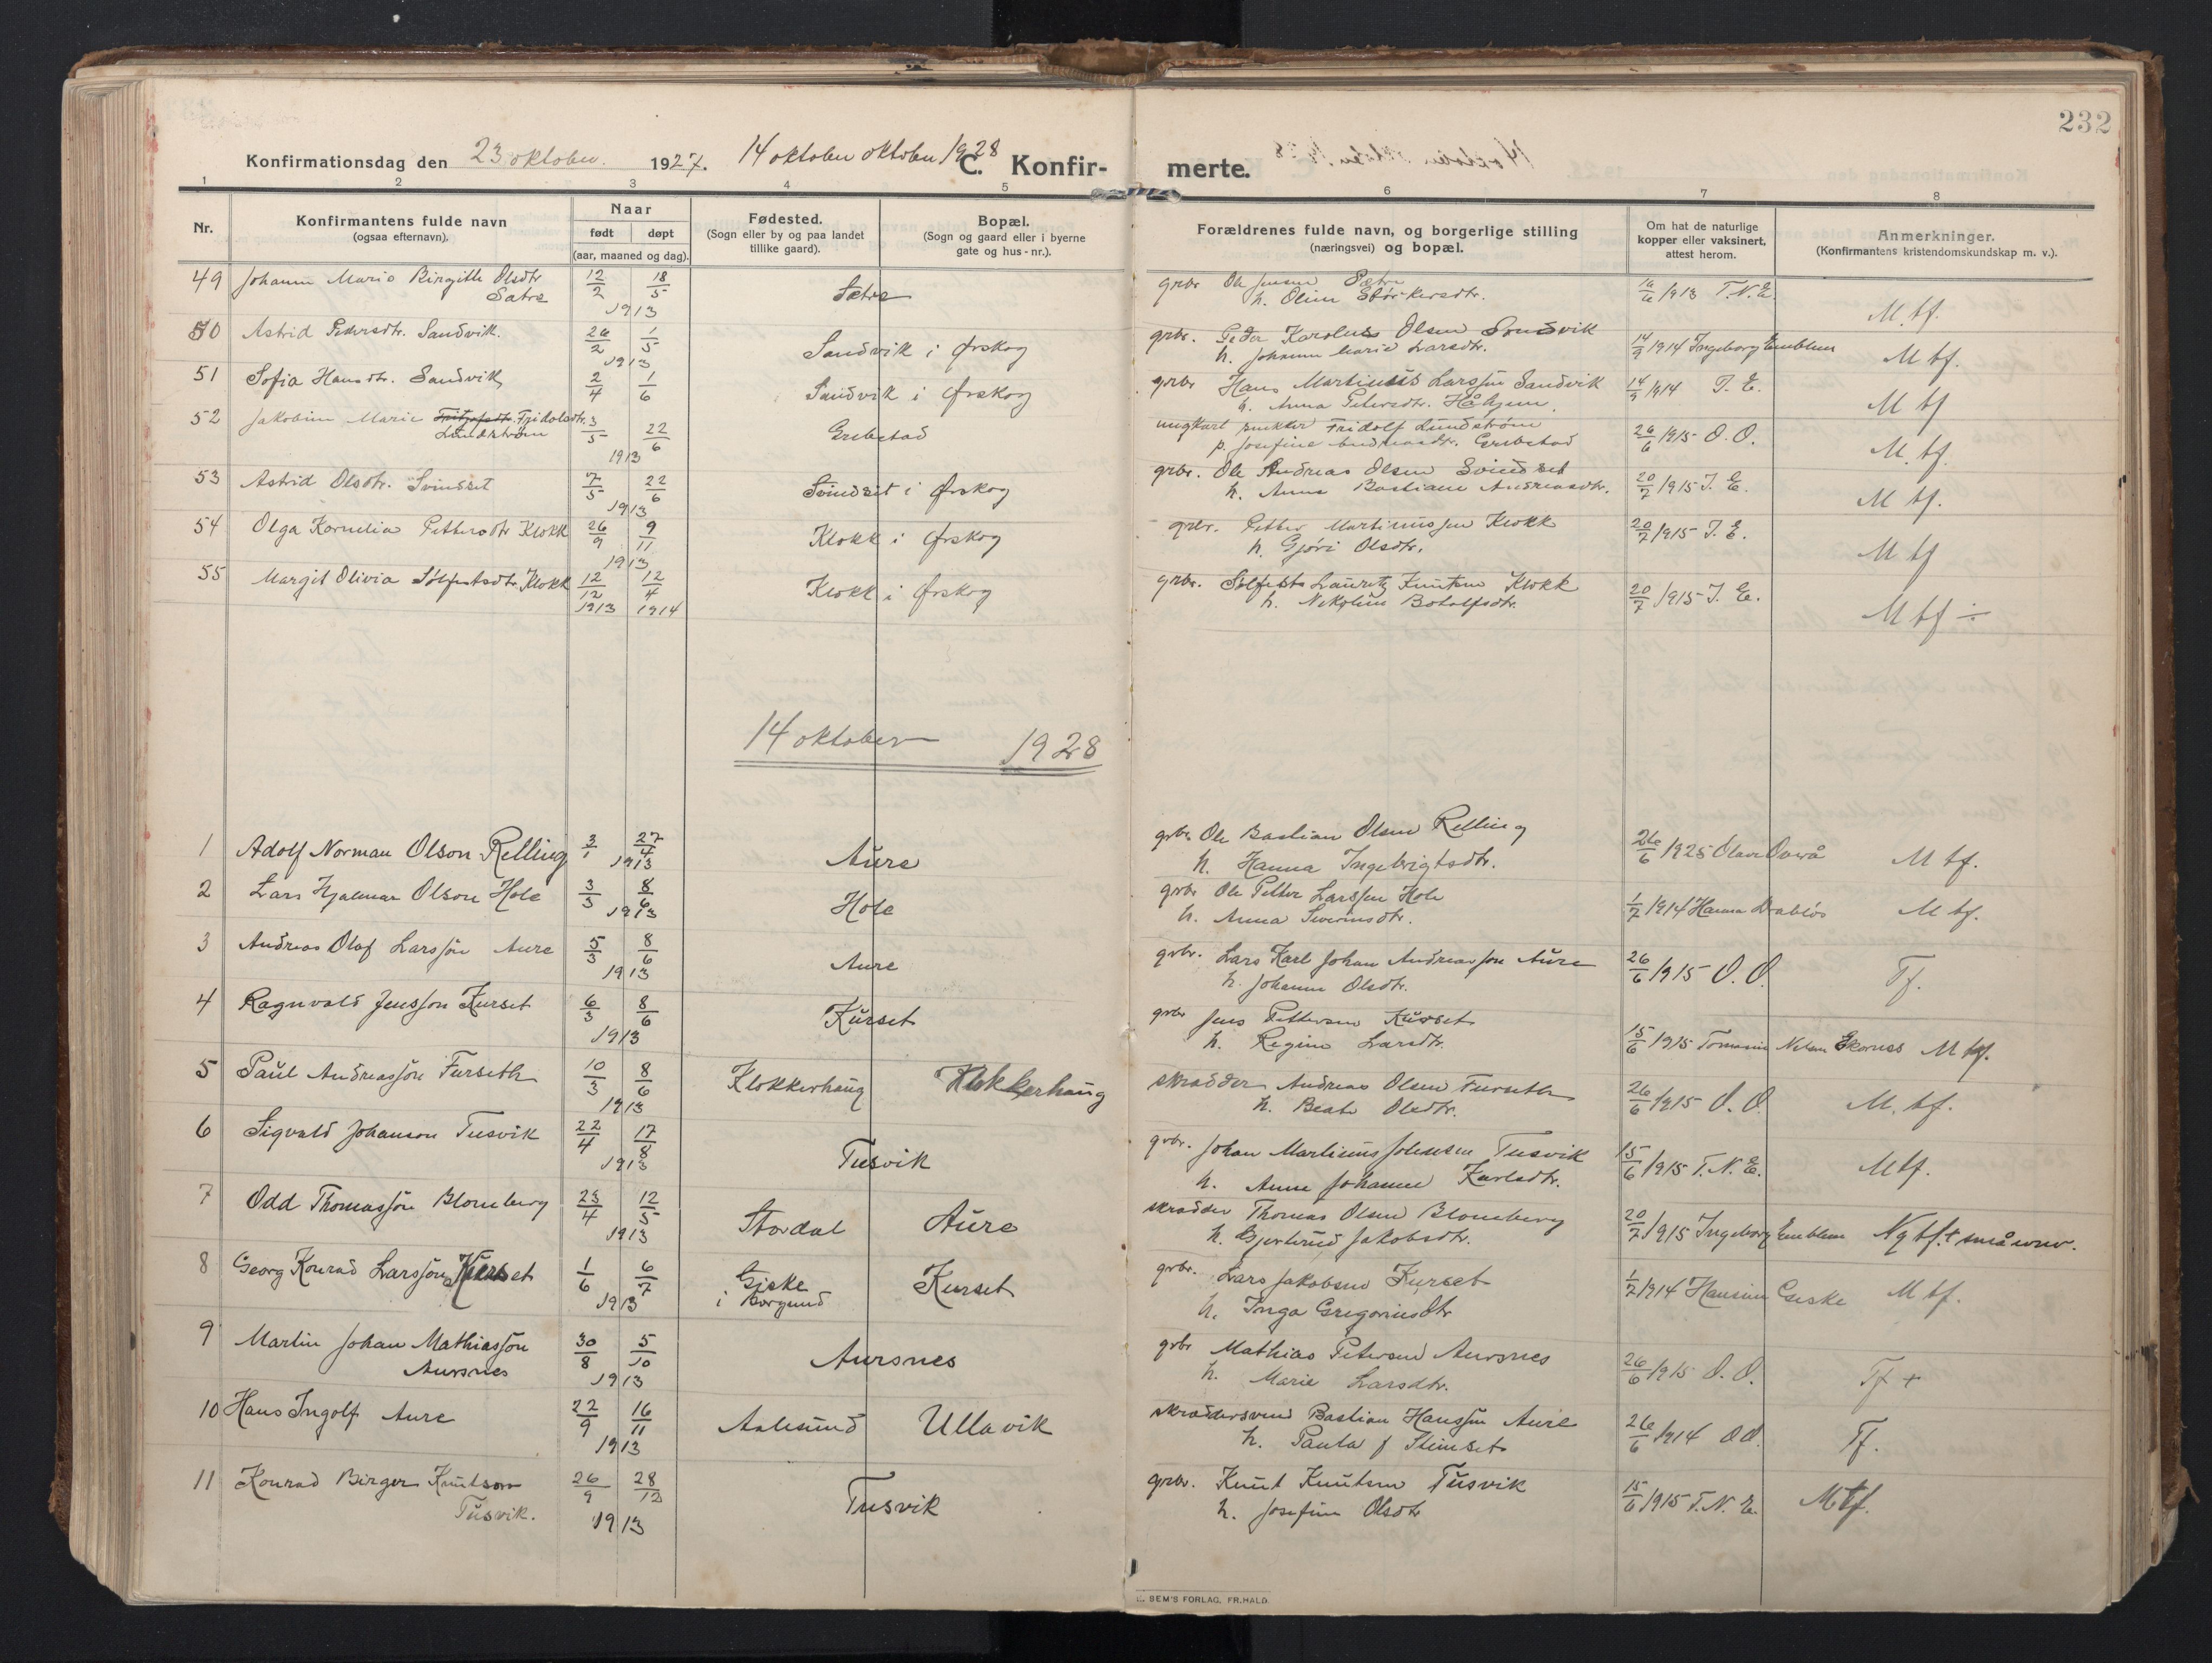 232
Konfirmationsdag den 23 oktober. 1927. 14 oktober oktober 1928 C. Konfir- merte.
1 2 3 4 5 6 7 8
Nr.
Konfirmantens fulde navn
(ogsaa efternavn).
Naar
født døpt
(aar, maaned og dag).
Fødested.
(Sogn eller by og paa landet
tillike gaard).
Bopæl.
(Sogn og gaard eller i byerne
gate og hus-nr.).
Forældrenes fulde navn, og borgerlige stilling
(næringsvei) og bopæl.
Om hat de naturlige
kopper eller vaksinert,
attest herom.
Anmerkninger.
(Konfirmantens kristendomskundskap m. v.).
49 Johanne Marie Birgitte Olsdtr 12/2 18/5 Sætre grbr Ole Jensen Sætre 16/6 1913 T.N.E. M.tf.
Sætre 1913 h. Oline
50 Astrid Pedersdtr. Sandvik. 26/2 1/5 Sandvik i Ørskog grbr. Peder Karolus Olsen Sandvik 14/9 1914 Ingeborg Emblem M tf.
1913 h. Johanne Marie Larsdtr.
51 Sofia Hansdtr. Sandvik 2/4 1/6 Sandvik i Ørskog grbr Hans Martinus Larssen Sandvik 14/9 1914 I. E. M tf
h. Anna Petersdtr.
52 Jakobine Marie Fridolsdtr. 3/5 22/6 Grebstad ungkart Fridolf Lundstrøm 26/6 1915 O. O. M. tf.
Lundstrøm 1913 p. Josefine Grebstad
53 Astrid Olsdtr. Svindset 7/5 22/6 Svindset i Ørskog grbr. Ole Andreas Olsen Svindset 20/7 1915 I. E. M tf.
1913 h. Anna Bastiane Andreasdtr.
54 Olga Kornelia Pettersdtr Klokk 26/9 9/11 Klokk i Ørskog grbr. Petter Martinussen Klokk 20/7 1915 I. E. M tf
1913 h. Gjøri Olsdtr.
55 Margit Olivia Sølfestsdtr. Klokk 12/12 12/4 Klokk i Ørskog grbr. Sølfest Lauritz Knutsen Klokk 20/7 1915 I. E. M tf ÷
1913 1914 h. Nikoline Botolfsdtr.
14 oktober 1928
1 Adolf Norman Olson Relling 3/1 27/4 Aure grbr Ole Bastian Olsen Relling 26/6 1925 Olave Overå M tf.
1913 h. Hanna Ingebrigtsdtr.
2 Lars Hjalmar Olson Hole 3/3 8/6 Hole grbr Ole Petter Larssen Hole 1/7 1914 Hanna Drabløs M tf.
1913 h. Anna Severinsdtr.
3 Andreas Olaf Larsson Aure 5/3 8/6 Aure grbr. Lars Karl Johan Andreassen Aure 26/6 1915 O. O. Tf.
1913 h. Johanne Olsdtr.
4 Ragnvald Jensson Kurset 6/3 8/6 Kurset grbr Jens Pettersen Kurset 15/6 1915 Tomasine Nelson Ekornes M tf.
1913 h. Regine Larsdtr.
5 Paul Andreasson Furseth 10/3 8/6 Klokkerhaug Klokkerhaug skrædder Andreas Olsen Furseth 26/6 1915 O. O. M. tf.
1913 h. Beate Olsdtr.
6 Sigvald Johanson Tusvik 22/4 17/8 Tusvik grbr. Johan Martinus Johnsen Tusvik 15/6 1915 T. N. E. M tf.
1913 h. Anne Johanne Karlsdtr.
7 Odd Thomasson Blomberg 23/4 12/5 Stordal Aure skrædder Thomas Olsen Blomberg 20/7 1915 Ingeborg Emblem Ng tf. +
1913 h. Gjertrud Jakobsdtr.
8 Georg Konrad Larsson Kurset 1/6 6/7 Giske Kurset grbr. Lars Jakobsen Kurset 1/7 1914 Hansine Giske M tf.
1913 i Borgund h. Inga Gregoriusdtr
9 Martin Johan Mathiasson 30/8 5/10 Aursnes grbr Mathias Petersen Aursnes 26/6 1915 O. O. Tf +
Aursnes 1913 h. Marie Larsdtr.
10 Hans Ingolf Aure 22/9 16/11 Aalesund Ullavik skræddersvend Bastian Hanssen Aure 26/6 1914 O.O. Tf.
1913 h. Paula f Slimset
11 Konrad Birger Knutson 26/9 28/12 Tusvik grbr. Knut Knutsen Tusvik 15/6 1915 T. N. E. M tf.
Tusvik. 1913 h. Josefine Olsdtr
E. SEM'S FORLAG, FR.HALD.